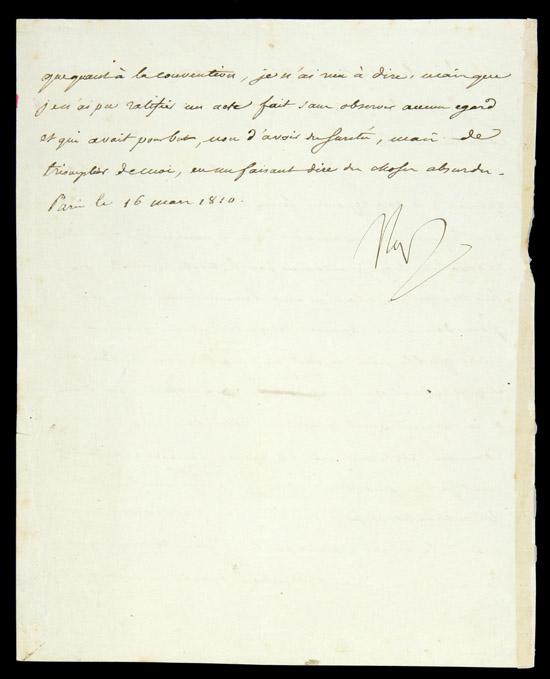 que quant à la convention, je n'ai rien à dire, mais que
je n'ai pu ratifier un acte fait sans observer aucun egard
et qui avait pour but, non d'avoir des suretés, mais de
triompher de moi, en me faisant dire des choses absurdes.
Paris le 16 mars 1810.
Np